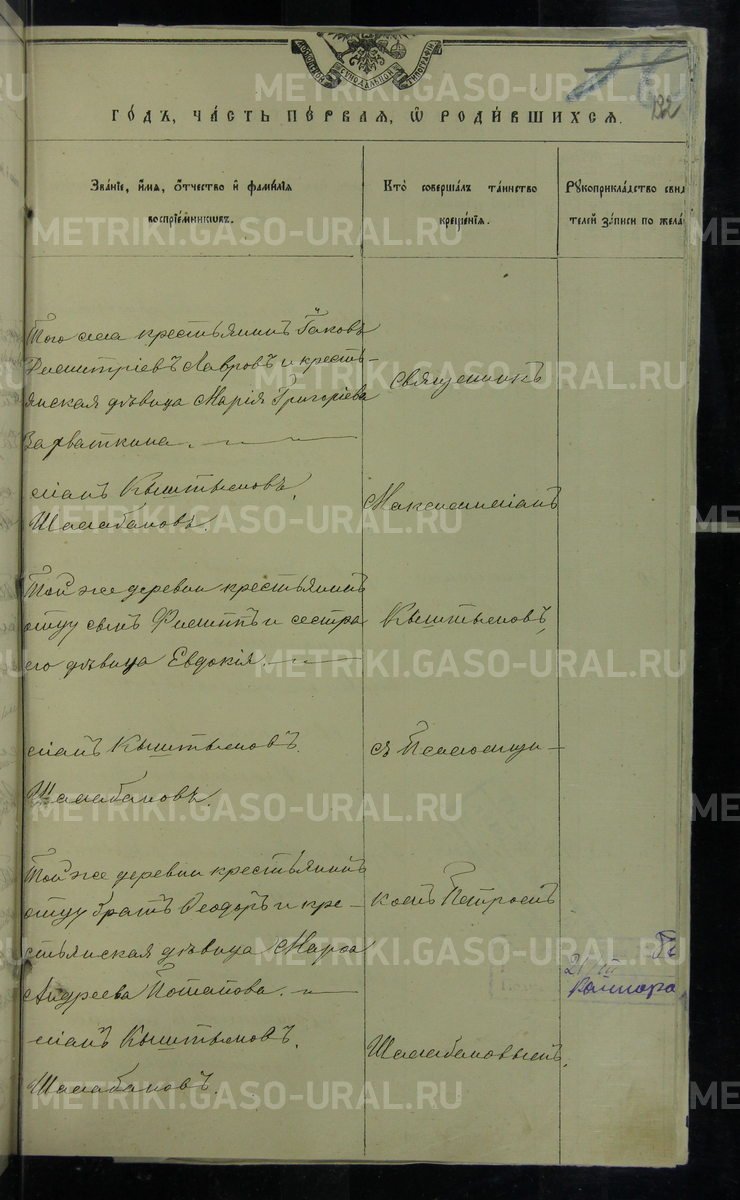 МОСКОВСКОЙ СѴНОДАЛЬНОЙ ТИПОГРАФІИ
132
ГО́ДЪ, ЧА́СТЬ ПЕ́РВАЯ, Ѿ РОДИ́ВШИХСЯ.
Зва́ніе, и́мя, о́тчество и фами́лія
воспріе́мниковъ.
Кто̀ соверша́лъ та́инство
креще́нія.
Рукоприкла́дство свид
телей за́писи по жела
Того села крестьянинъ Іаковъ
Димитріевъ Лавровъ и кресть-
янская дѣвица Марія Григоріева
Зарваткина.
Священникъ
міанъ Кыштымовъ,
Шалабановъ.
Максимиліанъ
Той же деревни крестьянинъ
отцу сынъ Филиппъ и сестра
его дѣвица Евдокія.
Кыштымовъ,
міанъ Кыштымовъ.
Шалабановъ.
съ Псаломщи-
Той же деревни крестьянинъ
отцу братъ Ѳеодоръ и кре-
стьянская дѣвица Марѳа
Андреева Потапова.
комъ Петромъ
міанъ Кыштымовъ,
Шалабановъ.
Шалабановымъ.
METRIKI.GASO-URAL.RU